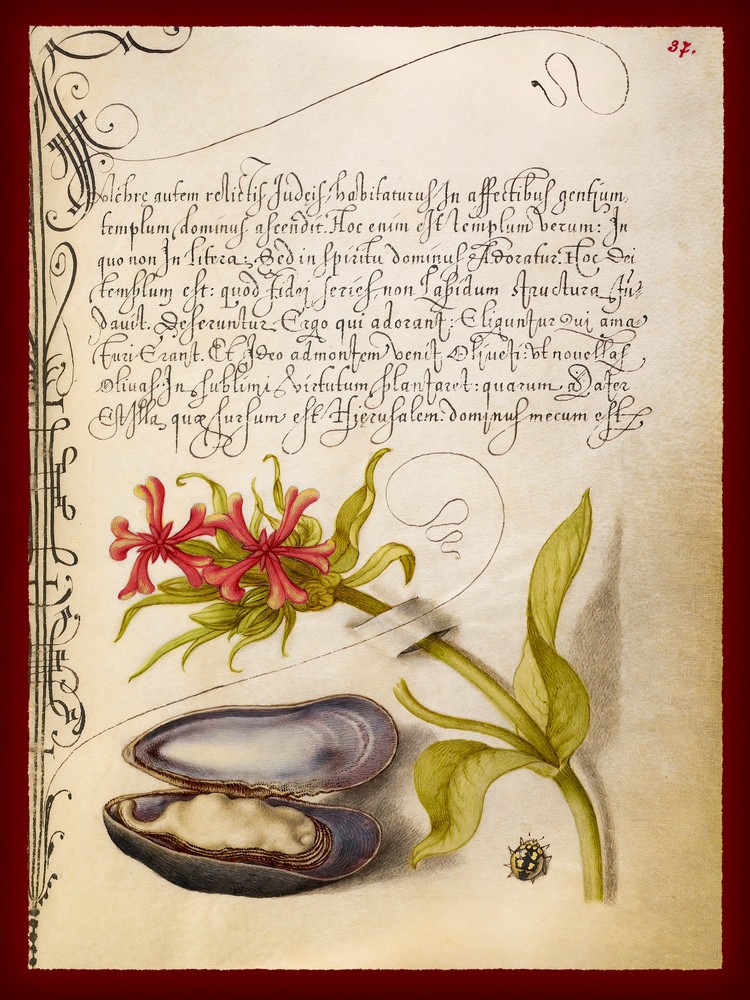 37.
autem relictis Judeis, habitaturus In affectibus gentium,
templum dominus ascendit. Hoc enim est templum verum: In
quo non In litera: Sed in spiritu dominus Adoratur. Hoc Dei
templum est: quod Fidei series, non Lapidum structura Fu-
dauit. Deseruntur Ergo qui adorant: Eliguntur Qui ama-
turi Erant. Et Ideo admontem venit Oliueti: vt nouellas
Oliuas In sublimi Virtutum plantaret: quarum Mater
Est Illa quæ sursum est Hierusalem. dominus mecum est